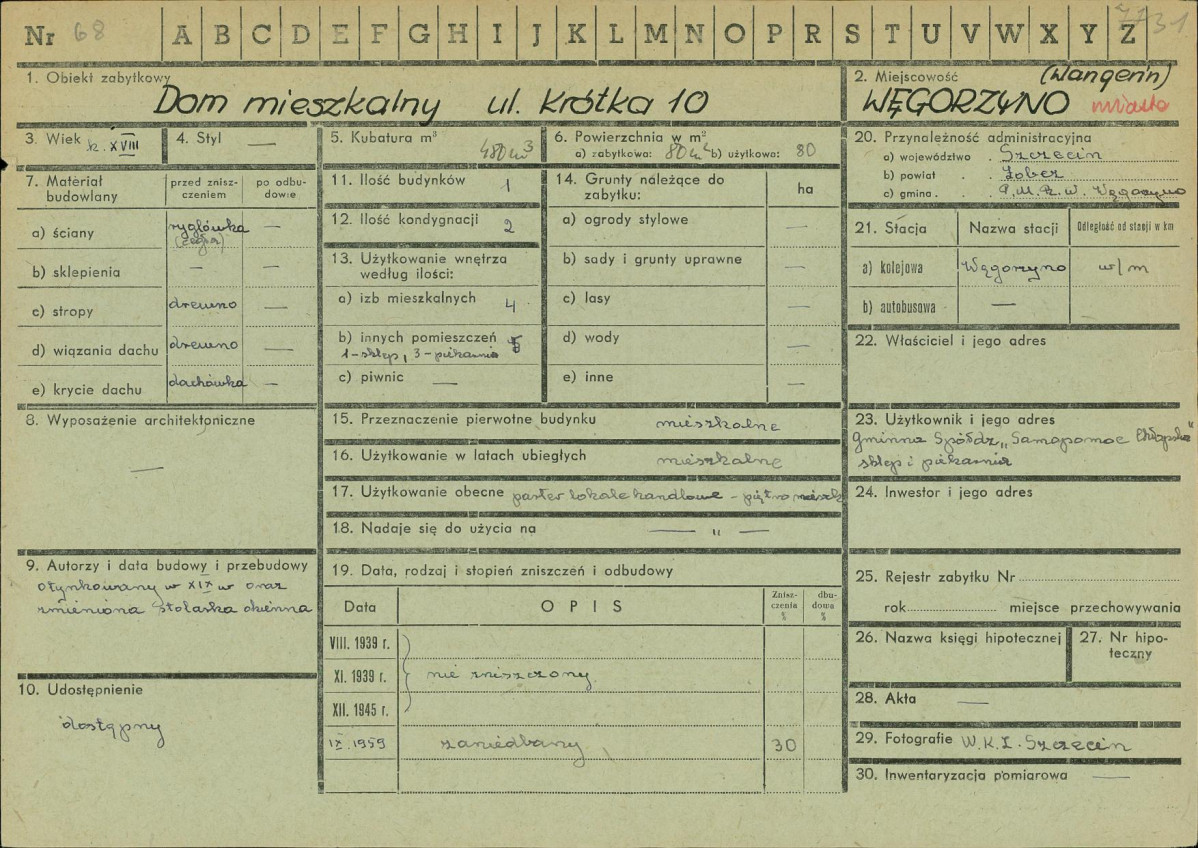 Nr 68 A B C D E F G H I J K L M N O P R S T U V W X Y Z 7731
1. Obiekt zabytkowy
Dom mieszkalny ul. Krótka 10
2. Miejscowość (Wangerin)
WĘGORZYNO miasto
3. Wiek k. XVIII
4. Styl —
5. Kubatura m³ 480 m³
6. Powierzchnia w m²
a) zabytkowa: 80 m² b) użytkowa: 80
7. Materiał budowlany
przed zniszczeniem
po odbudowie
a) ściany ryglówka —
(cegła)
b) sklepienia — —
c) stropy drewno —
d) wiązania dachu drewno —
e) krycie dachu dachówka —
8. Wyposażenie architektoniczne
—
9. Autorzy i data budowy i przebudowy
otynkowany w XIX w oraz
zmieniona stolarka okienna
10. Udostępnienie
dostępny
11. Ilość budynków 1
12. Ilość kondygnacji 2
13. Użytkowanie wnętrza
według ilości:
a) izb mieszkalnych 4
b) innych pomieszczeń
1-sklep, 3-piekarnia
c) piwnic —
14. Grunty należące do
zabytku: ha
a) ogrody stylowe —
b) sady i grunty uprawne —
c) lasy —
d) wody —
e) inne —
15. Przeznaczenie pierwotne budynku mieszkalne
16. Użytkowanie w latach ubiegłych mieszkalne
17. Użytkowanie obecne parter lokale handlowe – piętro mieszk
18. Nadaje się do użycia na — „ —
19. Data, rodzaj i stopień zniszczeń i odbudowy
Data OPIS Zniszczenia % dbudowa %
VIII. 1939 r.
XI. 1939 r. nie zniszczony
XII. 1945 r.
IX. 1959 zaniedbany 30
20. Przynależność administracyjna
a) województwo . Szczecin
b) powiat . . Łobez
c) gmina . P.M.R.W. Węgorzyno
21. Stacja Nazwa stacji Odległość od stacji w km
a) kolejowa Węgorzyno w/m
b) autobusowa —
22. Właściciel i jego adres
23. Użytkownik i jego adres
Gminna Spółdz. „Samopomoc Chłopska"
sklep i piekarnia
24. Inwestor i jego adres
25. Rejestr zabytku Nr
rok miejsce przechowywania
26. Nazwa księgi hipotecznej
27. Nr hipoteczny
28. Akta —
29. Fotografie W.K.Z. Szczecin
30. Inwentaryzacja pomiarowa —